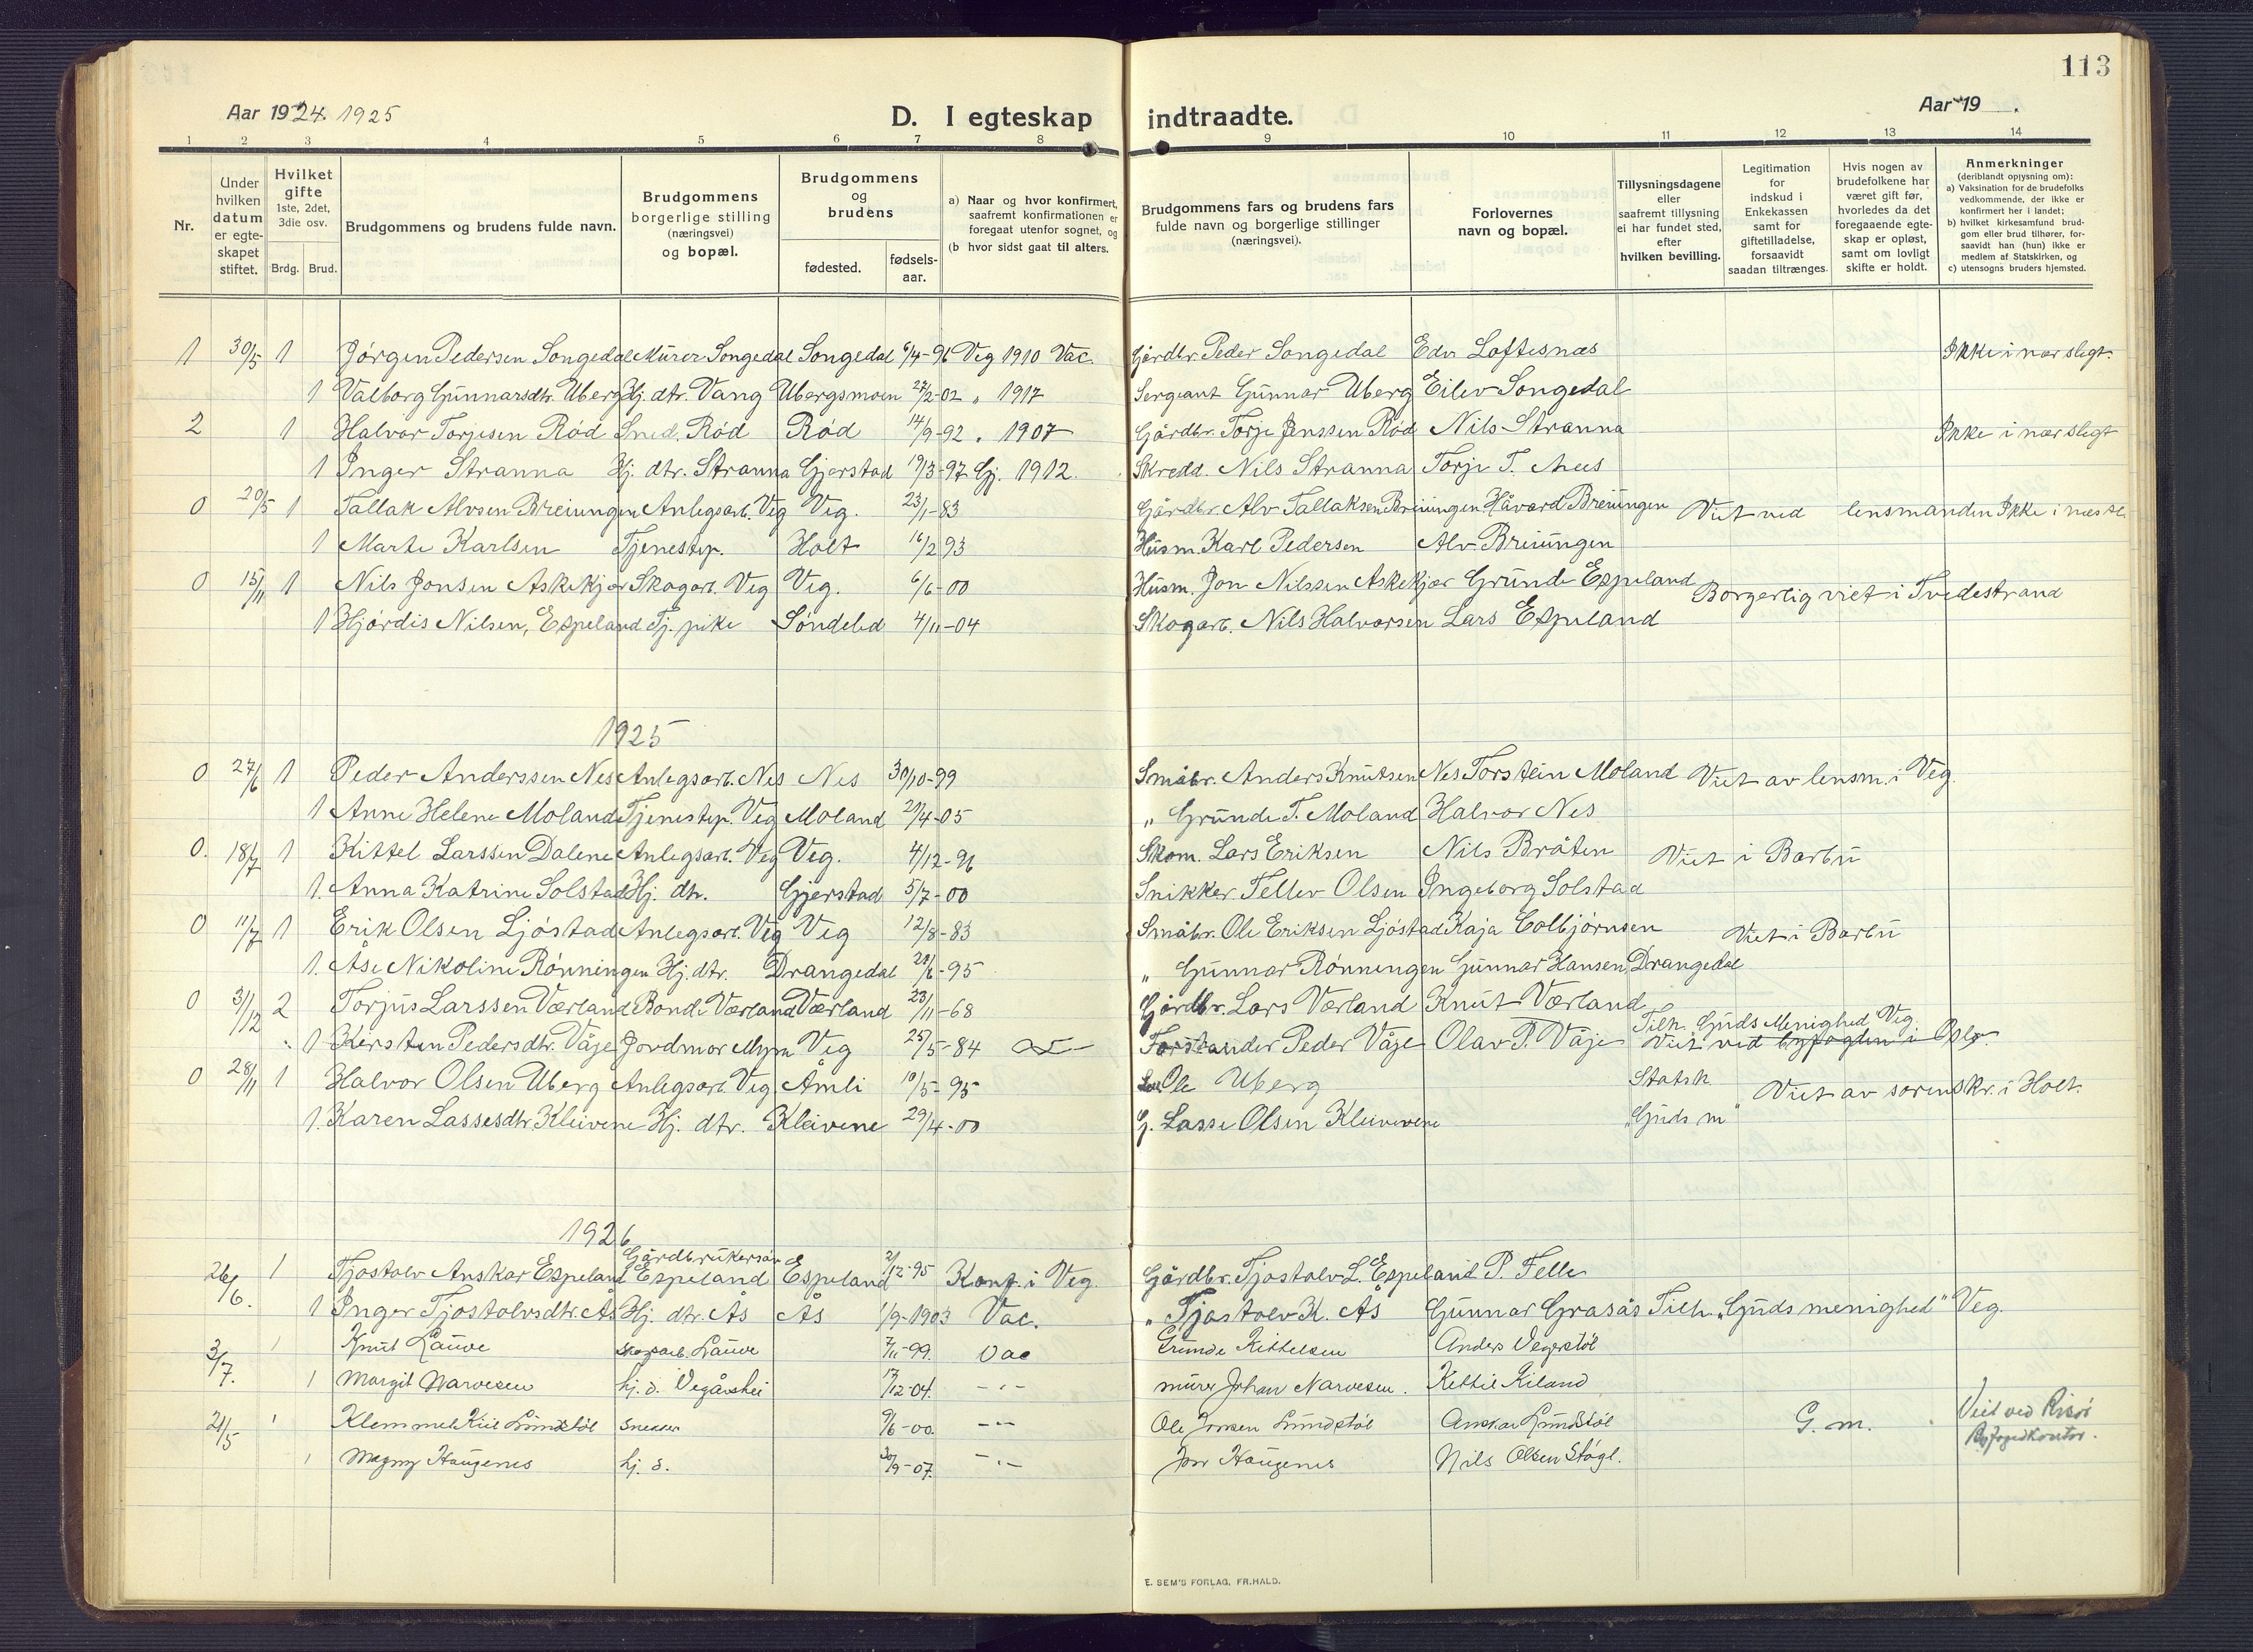 113
Aar 1924. 1925
D. I egteskap indtraadte.
Aar 19 .
1 2 3 4 5 6 7 8 9 10 11 12 13 14
Nr.
Under hvilken datum er egteskapet stiftet.
Hvilket gifte 1ste, 2det, 3die osv.
Brdg. Brud.
Brudgommens og brudens fulde navn.
Brudgommens borgerlige stilling (næringsvei) og bopæl.
Brudgommens og brudens
fødested.
fødselsaar.
a) Naar og hvor konfirmert, saafremt konfirmationen er foregaat utenfor sognet, og
(b hvor sidst gaat til alters.
Brudgommens fars og brudens fars fulde navn og borgerlige stillinger (næringsvei).
Forlovernes navn og bopæl.
Tillysningsdagene eller saafremt tillysning ei har fundet sted, efter hvilken bevilling.
Legitimation for indskud i Enkekassen samt for giftetilladelse, forsaavidt saadan tiltrænges.
Hvis nogen av brudefolkene har været gift før, hvorledes da det foregaaende egteskap er opløst, samt om lovligt skifte er holdt.
Anmerkninger (deriblandt oplysning om):
a) Vaksination for de brudefolks vedkommende, der ikke er konfirmert her i landet;
b) hvilket kirkesamfund brudgom eller brud tilhører, forsaavidt han (hun) ikke er medlem af Statskirken, og
c) utensogns bruders hjemsted.
1 30/5 1 Jørgen Pedersen Songedal Murer Songedal Songedal 6/4-96 Veg 1910 Vac. Gårdbr. Peder Songedal Edv Loftesnæs Ikke i nær slegt.
1 Valborg Gunnarsdtr. Uberg Hj. dtr. Vang Ubergsmoen 27/2-02 " 1917 Sergeant Gunnar Uberg Eilev Songedal
2 1 Halvor Torjesen Rød Sned. Rød Rød 14/9-92 " 1907 Gårdbr. Torje Jenssen Rød Nils Stranna Ikke i nær slegt
1 Inger Stranna Hj. dtr. Stranna Gjerstad 19/3-97 Gj. 1912. Skredd. Nils Stranna Torje T.
0 20/5 1 Tallak Alvsen Breiungen Anlegsarb. Veg Veg. 23/1-83 Gårdbr. Alv Tallaksen Breiungen Håvard Breiungen Viet ved lensmanden Ikke i
1 Marte Karlsen Tjenestep. Holt 16/2 93 Husm. Karl Pedersen Alv Breiungen
0 15/11 1 Nils Jonsen Askekjær Skogarb. Veg Veg. 6/6-00 Husm. Jon Nilssen Askekjær Grunde Espeland Borgerlig viet i Tvedestrand
1 Hjørdis Nilsen, Espeland Tj. pike Søndeled 4/11-04 Skogarb. Nils Halvorsen Lars Espeland
1925
0 27/6 1 Peder Anderssen Nes Anlegsarb. Nes Nes 30/10-99 Småbr. Anders Knutsen Nes Torstein Moland Viet av lensm. i Veg.
1 Anne Helene Moland Tjenestep. Veg Moland 21/4-05 " Grunde T. Moland Halvor Nes
0. 18/7 1 Kittel Larssen Dalene Anlegsarb. Veg Veg. 4/12-96 Skom. Lars Eriksen Nils Bråten Viet i Barbu
1. Anna Katrine Solstad Hj. dtr. Gjerstad 5/7-00 Snikker Tellev Olsen Ingeborg Solstad
0 11/7 1 Erik Olsen Ljøstad Anlegsarb. Veg Veg 12/8-83 Småbr. Ole Eriksen Ljøstad Kaja Colbjørnsen Viet i Barbu
1. Åse Nikoline Rønningen Hj. dtr. Drangedal 20/6-95 " Gunnar Rønningen Gunnar Hansen, Drangedal
0 3/12 2 Torjus Larssen Værland Bonde Værland Værland 23/11-68 Gårdbr. Lars Værland Knut Værland
1 Kirsten Pedersdtr. Våje Jordmor Myra Veg 25/5-84 Forstander Peder Våje Olav P. Våje Tilh. Guds Menighed Veg. Viet ved byfogden i Oslo
0 28/11 1 Halvor Olsen Uberg Anlegsarb. Veg. Åmli 10/5-95 Ole Uberg Statsk. Viet av sorenskr. i Holt.
1. Karen Lassesdtr. Kleivene Hj. dtr. Kleivene 29/4-00 G. Lasse Olsen Kleivene "Guds m"
1926
26/6. 1 Tjostolv Anskar Espeland Gårdbrukersøn Espeland Espeland 2/12-95 Konf. i Veg. Gårdbr. Tjostolv L. Espeland P. Felle
1 Inger Tjostolvsdtr. Ås Hj. dtr. Ås Ås 1/9-1903 Vac. " Tjostolv K. Ås Gunnar Grasås Tilh. "Guds menighed" Veg.
3/7. 1 Knut Lauve Skogsarb. Lauve 7/11-99. Vac Grunde Kittelsen Anders Vegerstøl
1 Margit Narvesen hj. d. Vegårshei 17/12-04. -"- murer Johan Narvesen. Kittil Kiland
21/5 1 Klemmet Kiil Lundstøl Snekker 9/6-00 -"- Ole Jonsen Lundstøl Anskar Lundstøl G. m. Viet ved Risør Byfogedkontor.
1 Magny Haugenes hj. d. 30/9-07. -"- Jon Haugenes Nils Olsen
E. SEM'S FORLAG, FR.HALD.